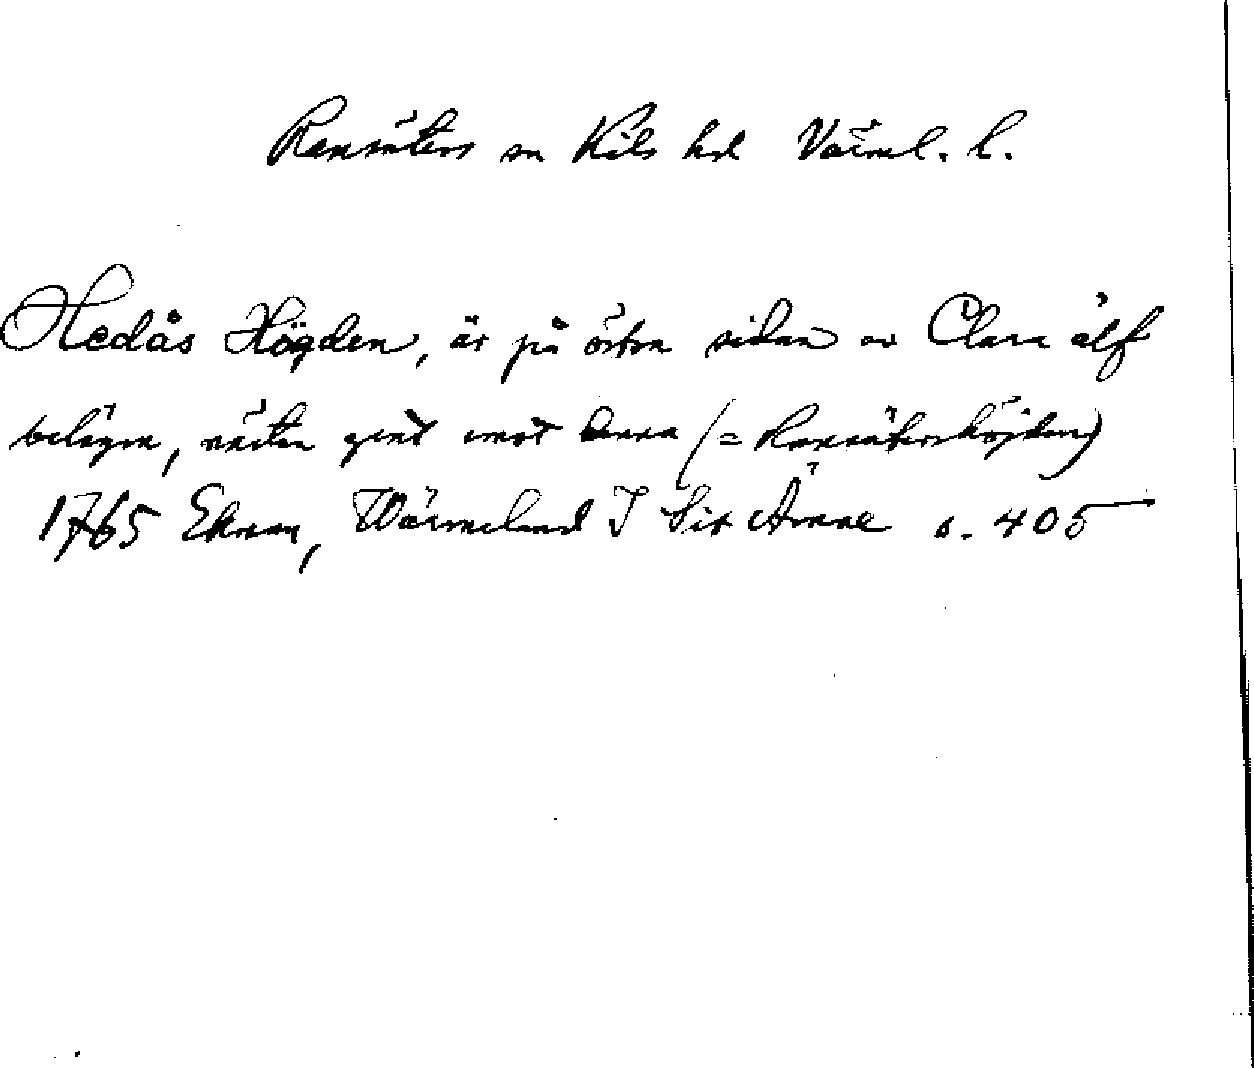 Ransäters sn Kils hd Värml. l.
Hedås Högden, är på östra sidan av Clara älf
belägen, nästan gent emot denna (= Ransätershöjden)
1765 Ekman, Wärmeland I Sitt Ämne s. 405